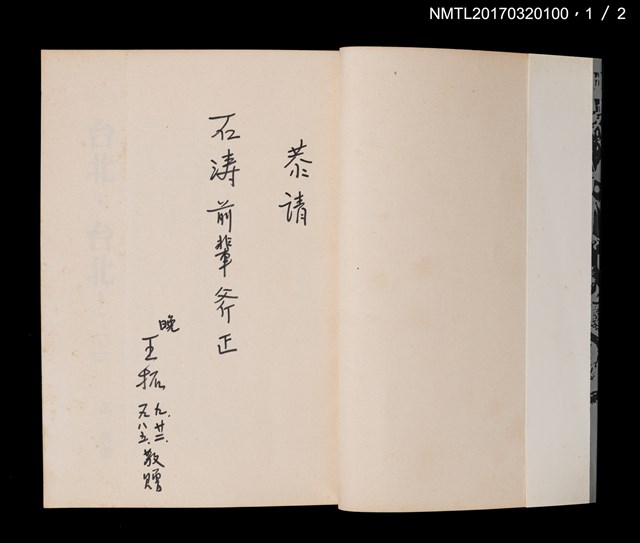 NMTL20170320100，1 / 2
恭請
石涛前輩斧正
晚
王拓
九.廿二.
一九八五.
敬贈
台北 台北